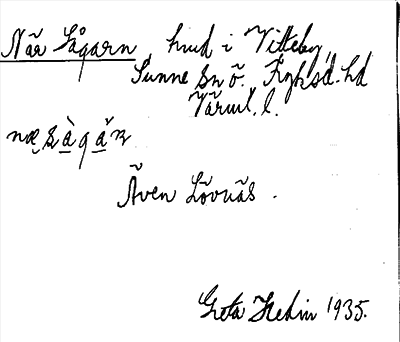 När Sågarn, hmd i Vitteby,
Sunne sn ö. Fryksd. hd
Värml. l.
Även Lövnäs.
Greta Hedin 1935.